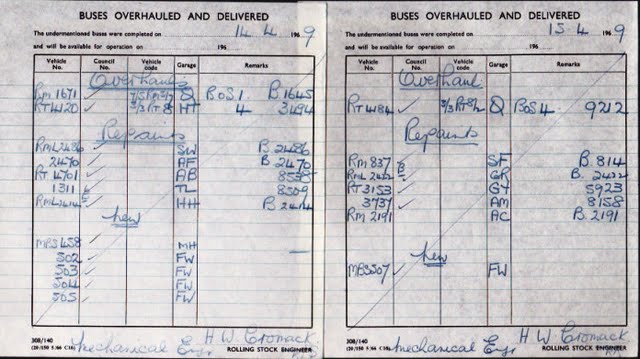 BUSES OVERHAULED AND DELIVERED
The undermentioned buses were completed on 14.4 1969
and will be available for operation on 196
Vehicle No. Council No. Vehicle code Garage Remarks
Overhauls
RM 1671 Q BOS 1 B 1645
RT 4120 HT 4 3494
Repaints
RML 2486 SW B 2486
2470 AF B 2470
RT 4701 AB 8538
1311 TL 8509
RML 2414 HH B 2414
New
MBS 458 MH
502 FW
503 FW
504 FW
505 FW
308/140
Mechanical Engr H W Cromack
ROLLING STOCK ENGINEER
BUSES OVERHAULED AND DELIVERED
The undermentioned buses were completed on 15.4 1969
and will be available for operation on 196
Vehicle No. Council No. Vehicle code Garage Remarks
Overhaul
RT 4184 Q BOS 4 9212
Repaints
RM 837 SF B 814
RML 2422 GR B. 2422
RT 3153 GY 5923
3737 AM 8158
RM 2191 AC B. 2191
New
MBS 507 FW
308/140
Mechanical Engr H W Cromack
ROLLING STOCK ENGINEER